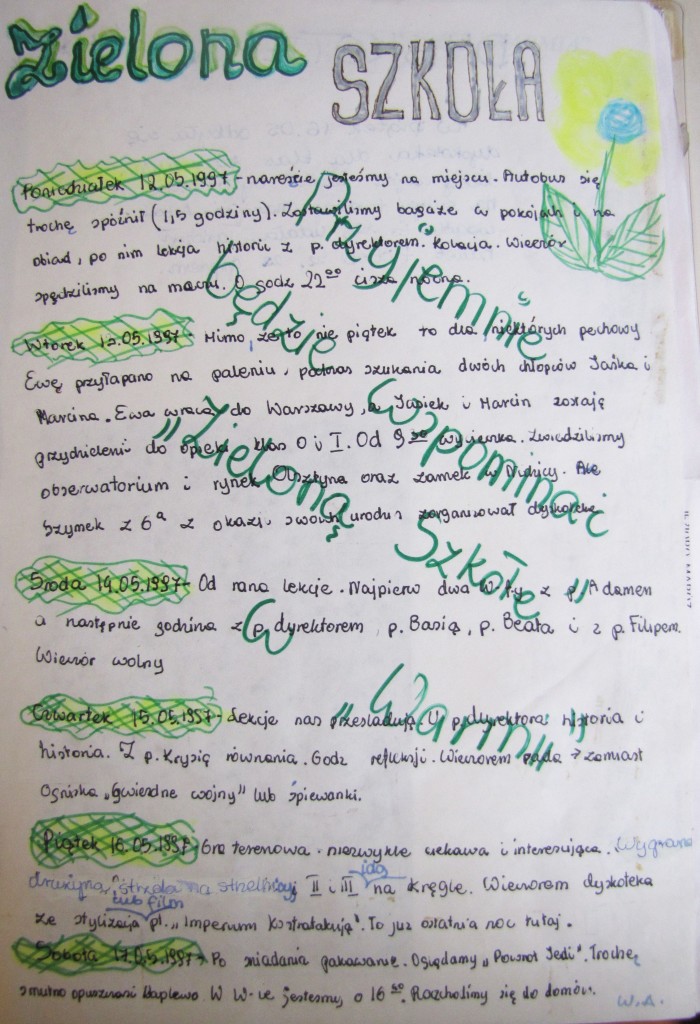 Zielona SZKOŁA
Poniedziałek 12.05.1997 - nareszcie jesteśmy na miejscu. Autobus się
trochę spóźnił (1,5 godziny). Zostawiliśmy bagaże w pokojach i na
obiad, po nim lekcja historii z p. dyrektorem. Kolacja. Wieczór
spędziliśmy na meczu. O godz 22⁰⁰ cisza nocna.
Wtorek 13.05.1997 - Mimo, że to nie piątek to dla niektórych pechowy
Ewę przyłapano na paleniu, podczas szukania dwóch chłopców Jaśka i
Marcina. Ewa wraca do Warszawy, a Jasiek i Marcin zostają
przydzieleni do opieki klas 0 i I. Od 9³⁰ wycieczka. Zwiedziliśmy
obserwatorium i rynek Olsztyna oraz zamek w Nidzicy. Ale
Szymek z 6ᵃ z okazji swoich urodzin zorganizował dyskotekę
Środa 14.05.1997 - Od rana lekcje. Najpierw dwa W-fy z p. Adamem
a następnie godzina z p. dyrektorem, p. Basią, p. Beatą i z p. Filipem.
Wieczór wolny
Czwartek 15.05.1997 - Lekcje nas prześladują. U p. dyrektora historia i
historia. Z p. Krysią równania. Godz refleksji. Wieczorem pada → zamiast
Ogniska „Gwiezdne wojny" lub śpiewanki.
Piątek 16.05.1997 Gra terenowa - niezwykle ciekawa i interesująca. Wygrana
drużyna strzela na strzelnicy i II i III idą na kręgle. Wieczorem dyskoteka
lub film
ze stylizacją pt. „Imperium Kontratakuje". To już ostatnia noc tutaj.
Sobota 17.05.1997 - Po śniadaniu pakowanie. Oglądamy „Powrót Jedi". Trochę
smutno opuszczać Waplewo. W W-ie jesteśmy o 16³⁰. Rozchodzimy się do domów.
W.A.
Przyjemnie
będzie
wspominać
„Zieloną
Szkołę"
W
„Warni"